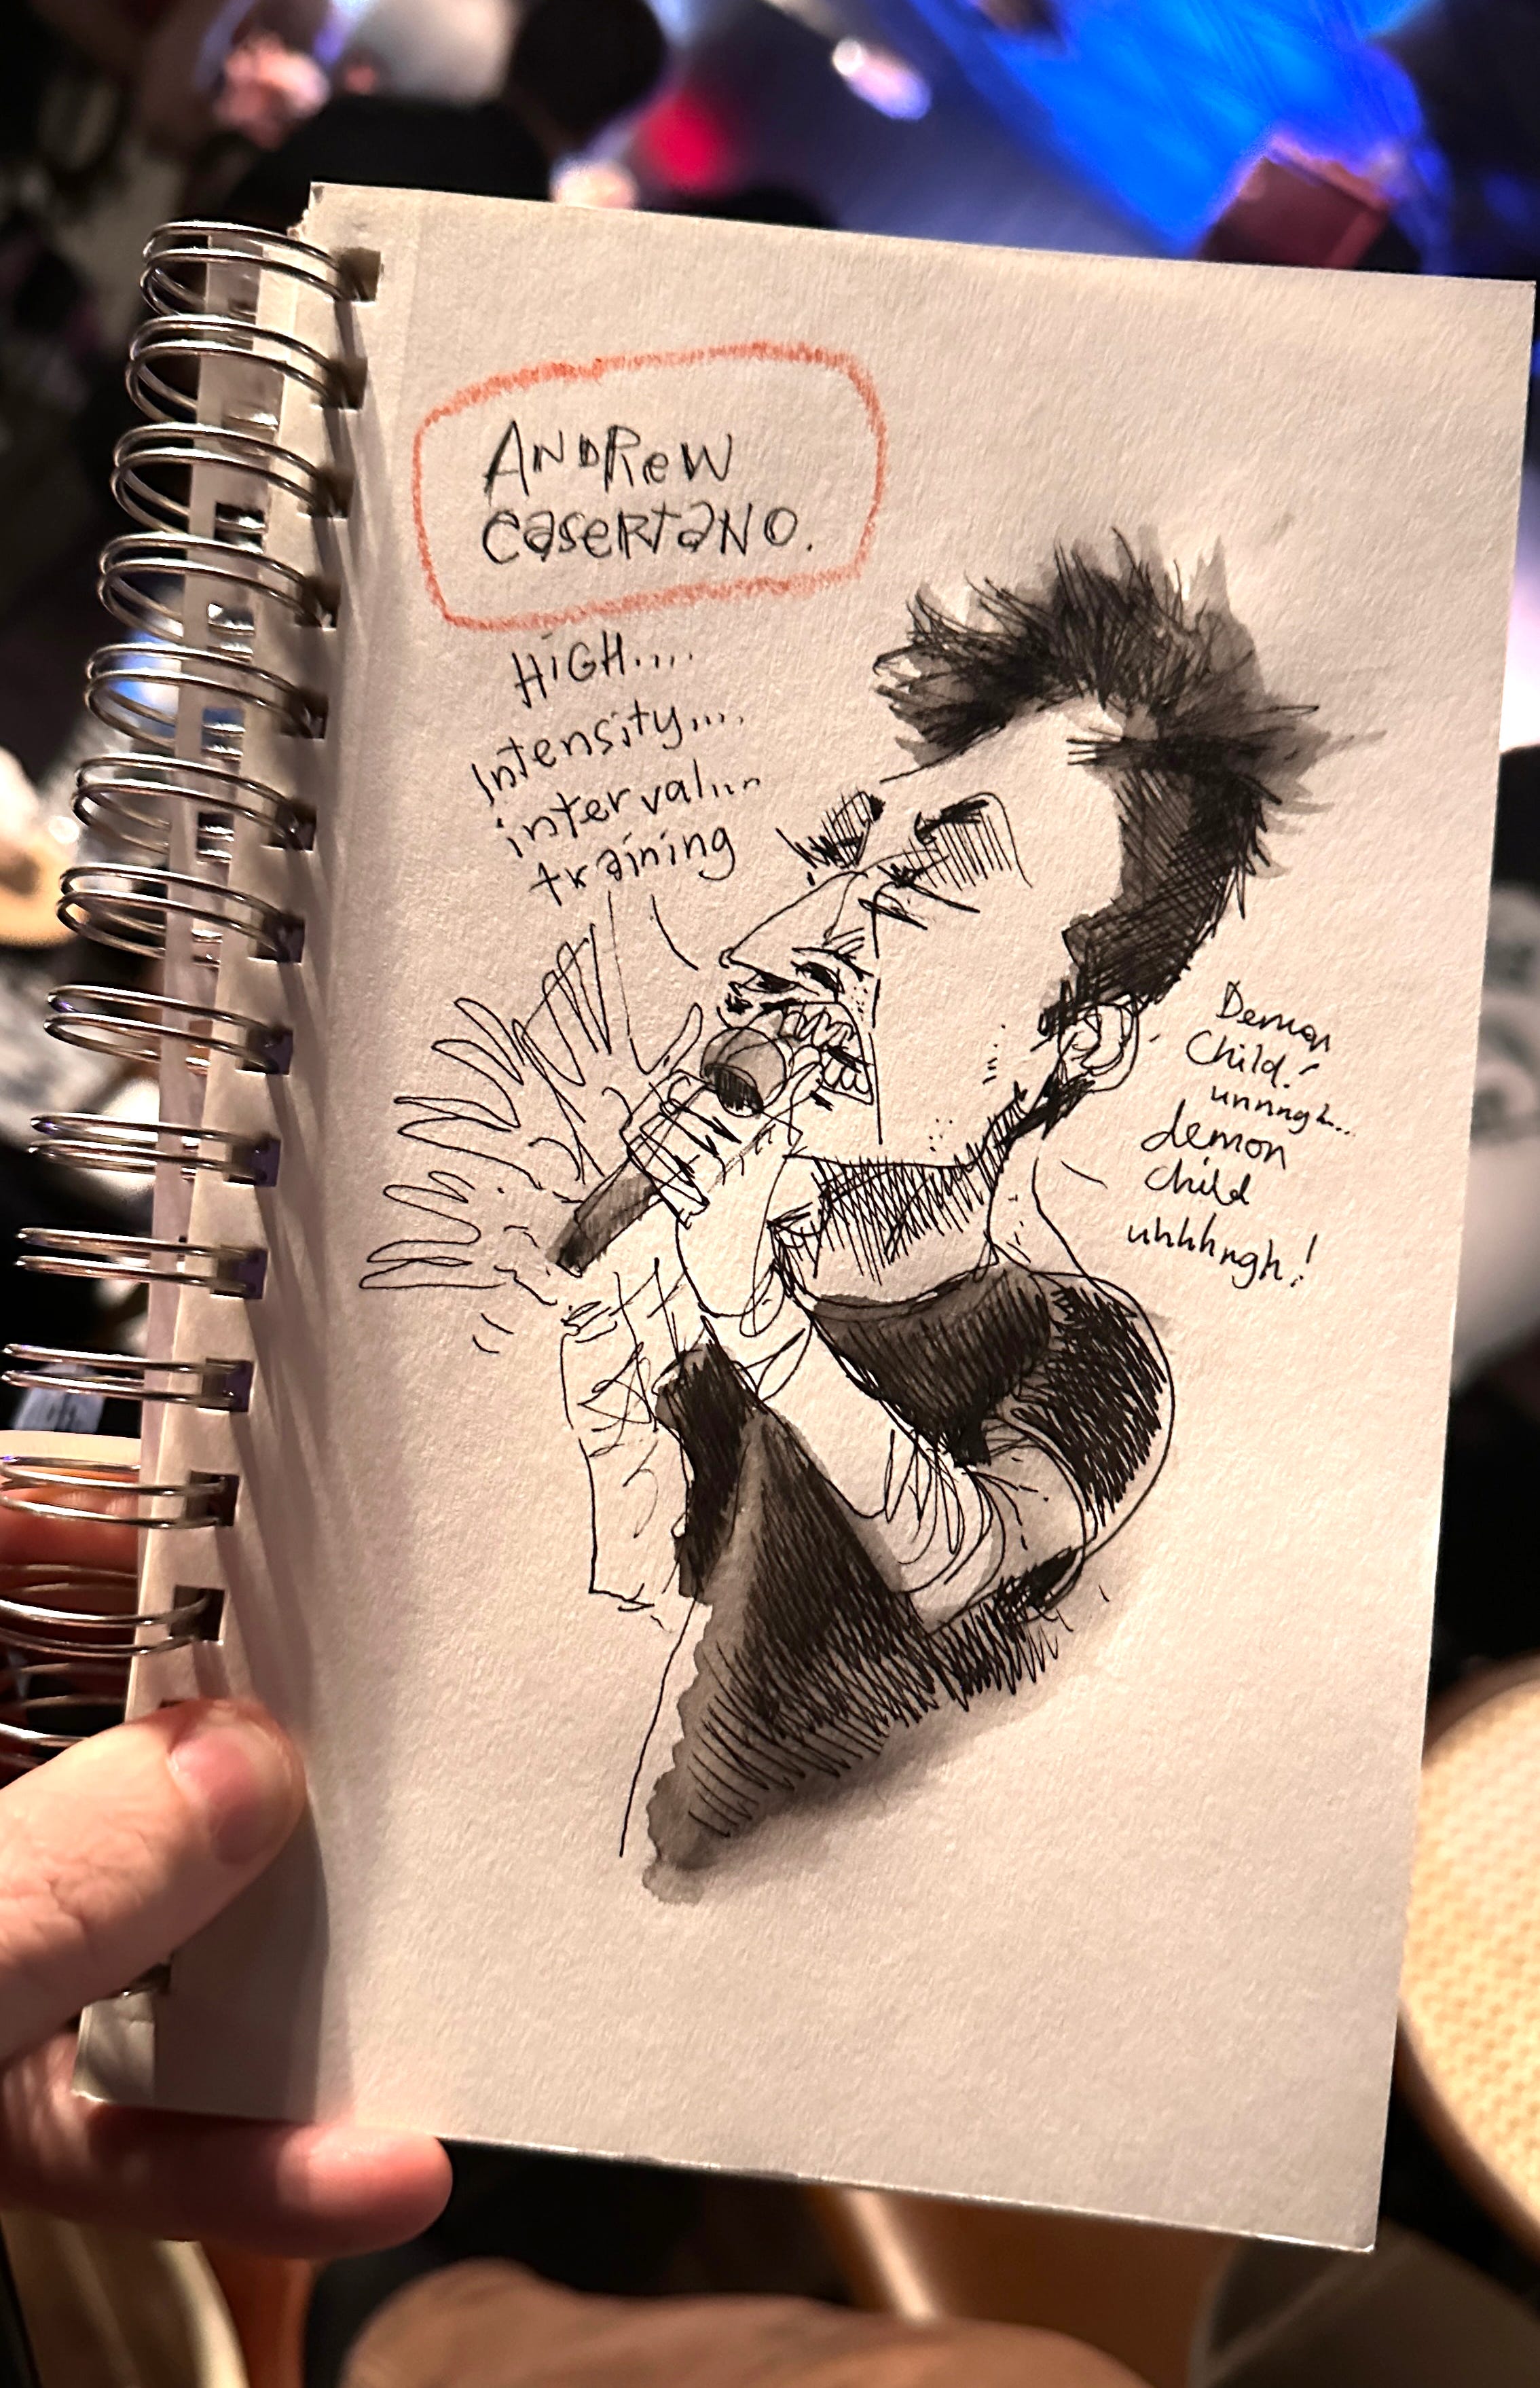 ANDReW
CaseRtaNO.
HiGH....
Intensity....
interval....
training
Demon
Child!
unnngh...
demon
child
uhhhngh!